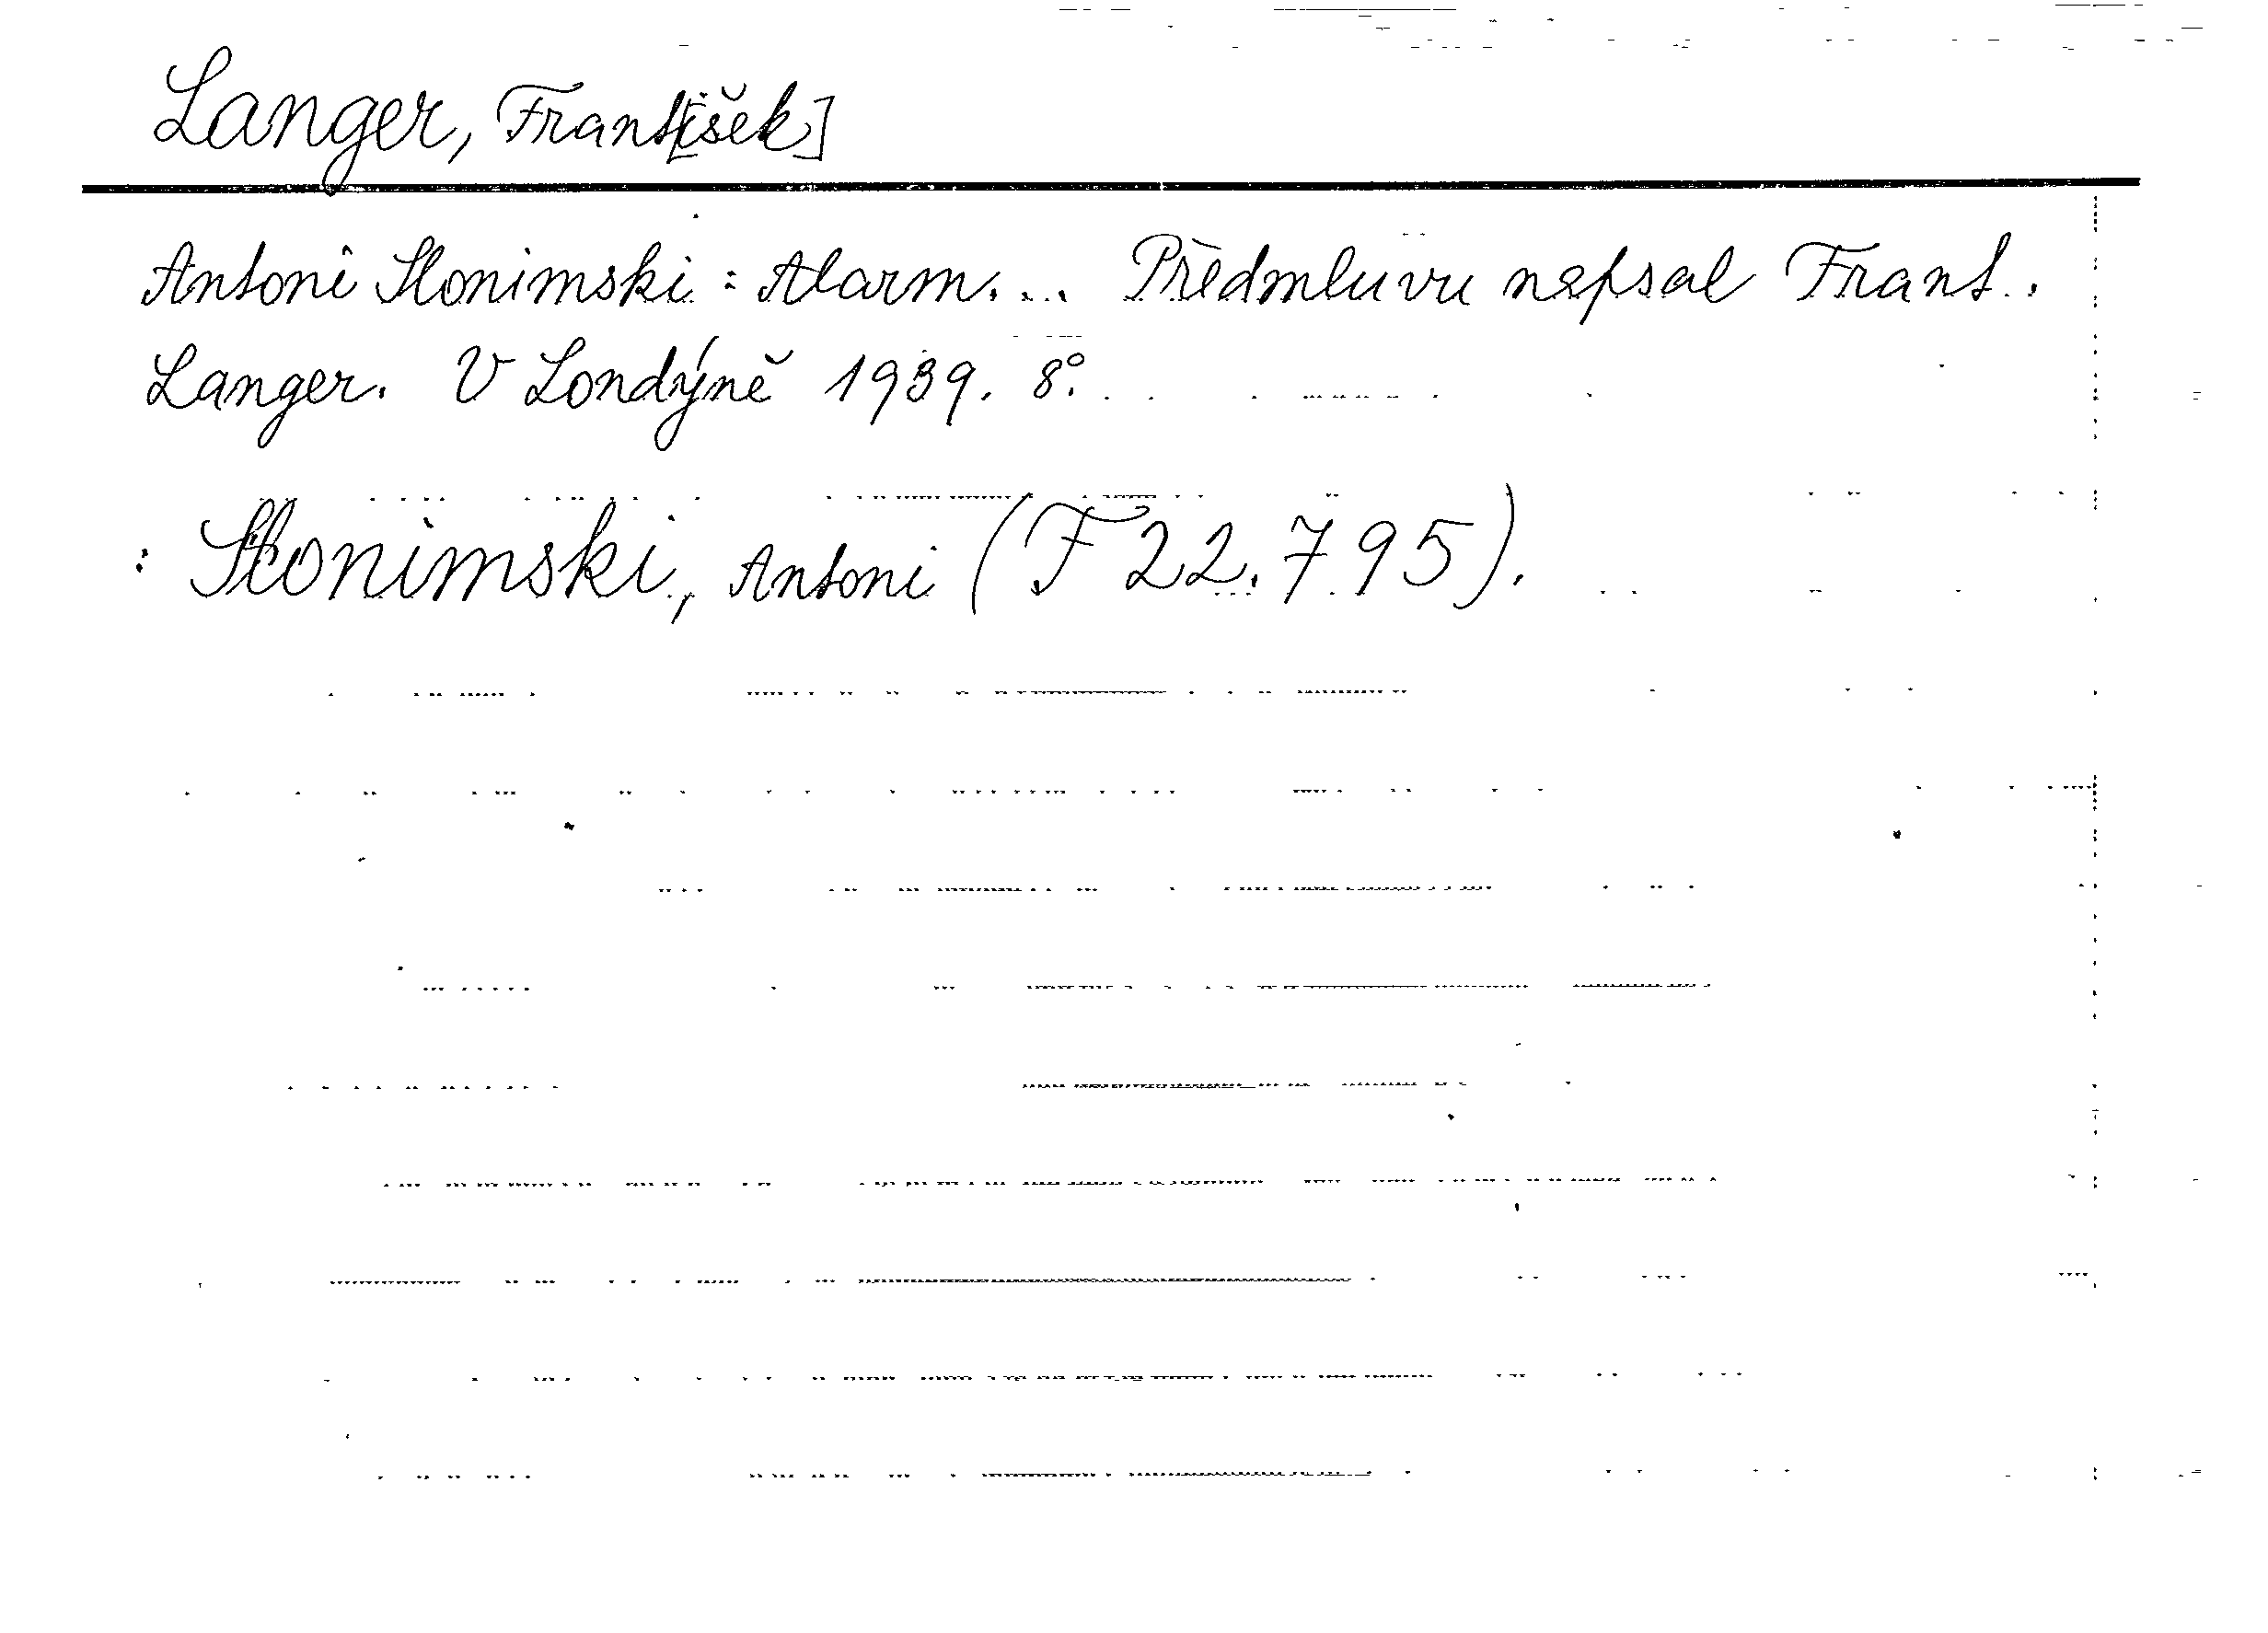 Langer, Frant[išek]
Antoni Slonimski: Alarm... Předmluvu napsal Frant.
Langer. V Londýně 1939. 8°.
: Slonimski, Antoni (F 22.795).